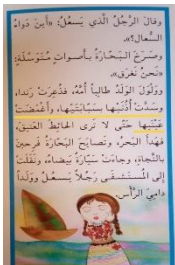 وقالَ الرَّجُلُ الَّذي يَسعُلُ: «أينَ دَواءُ
السُّعالِ؟».
وصَرَخَ البَحّارَةُ بأصواتٍ مُتَوَسِّلَةٍ:
«نَحنُ نَغرَقُ».
ووَلوَلَ الوَلَدُ طالِباً أُمَّهُ، فذُعِرَتْ رَندا،
وسَدَّتْ أُذُنَيْها بِسَبّابَتَيْها، وأغمَضَتْ
عَيْنَيْها حَتّى لا تَرى الحائِطَ العَتيقَ،
فهَدَأَ البَحرُ، وتَصايَحَ البَحّارَةُ فَرِحينَ
بالنَّجاةِ، وجاءَتْ سَيّارَةٌ بَيضاءُ، ونَقَلَتْ
إلى المُستَشفى رَجُلاً يَسعُلُ ووَلَداً
دامِيَ الرَّأسِ.